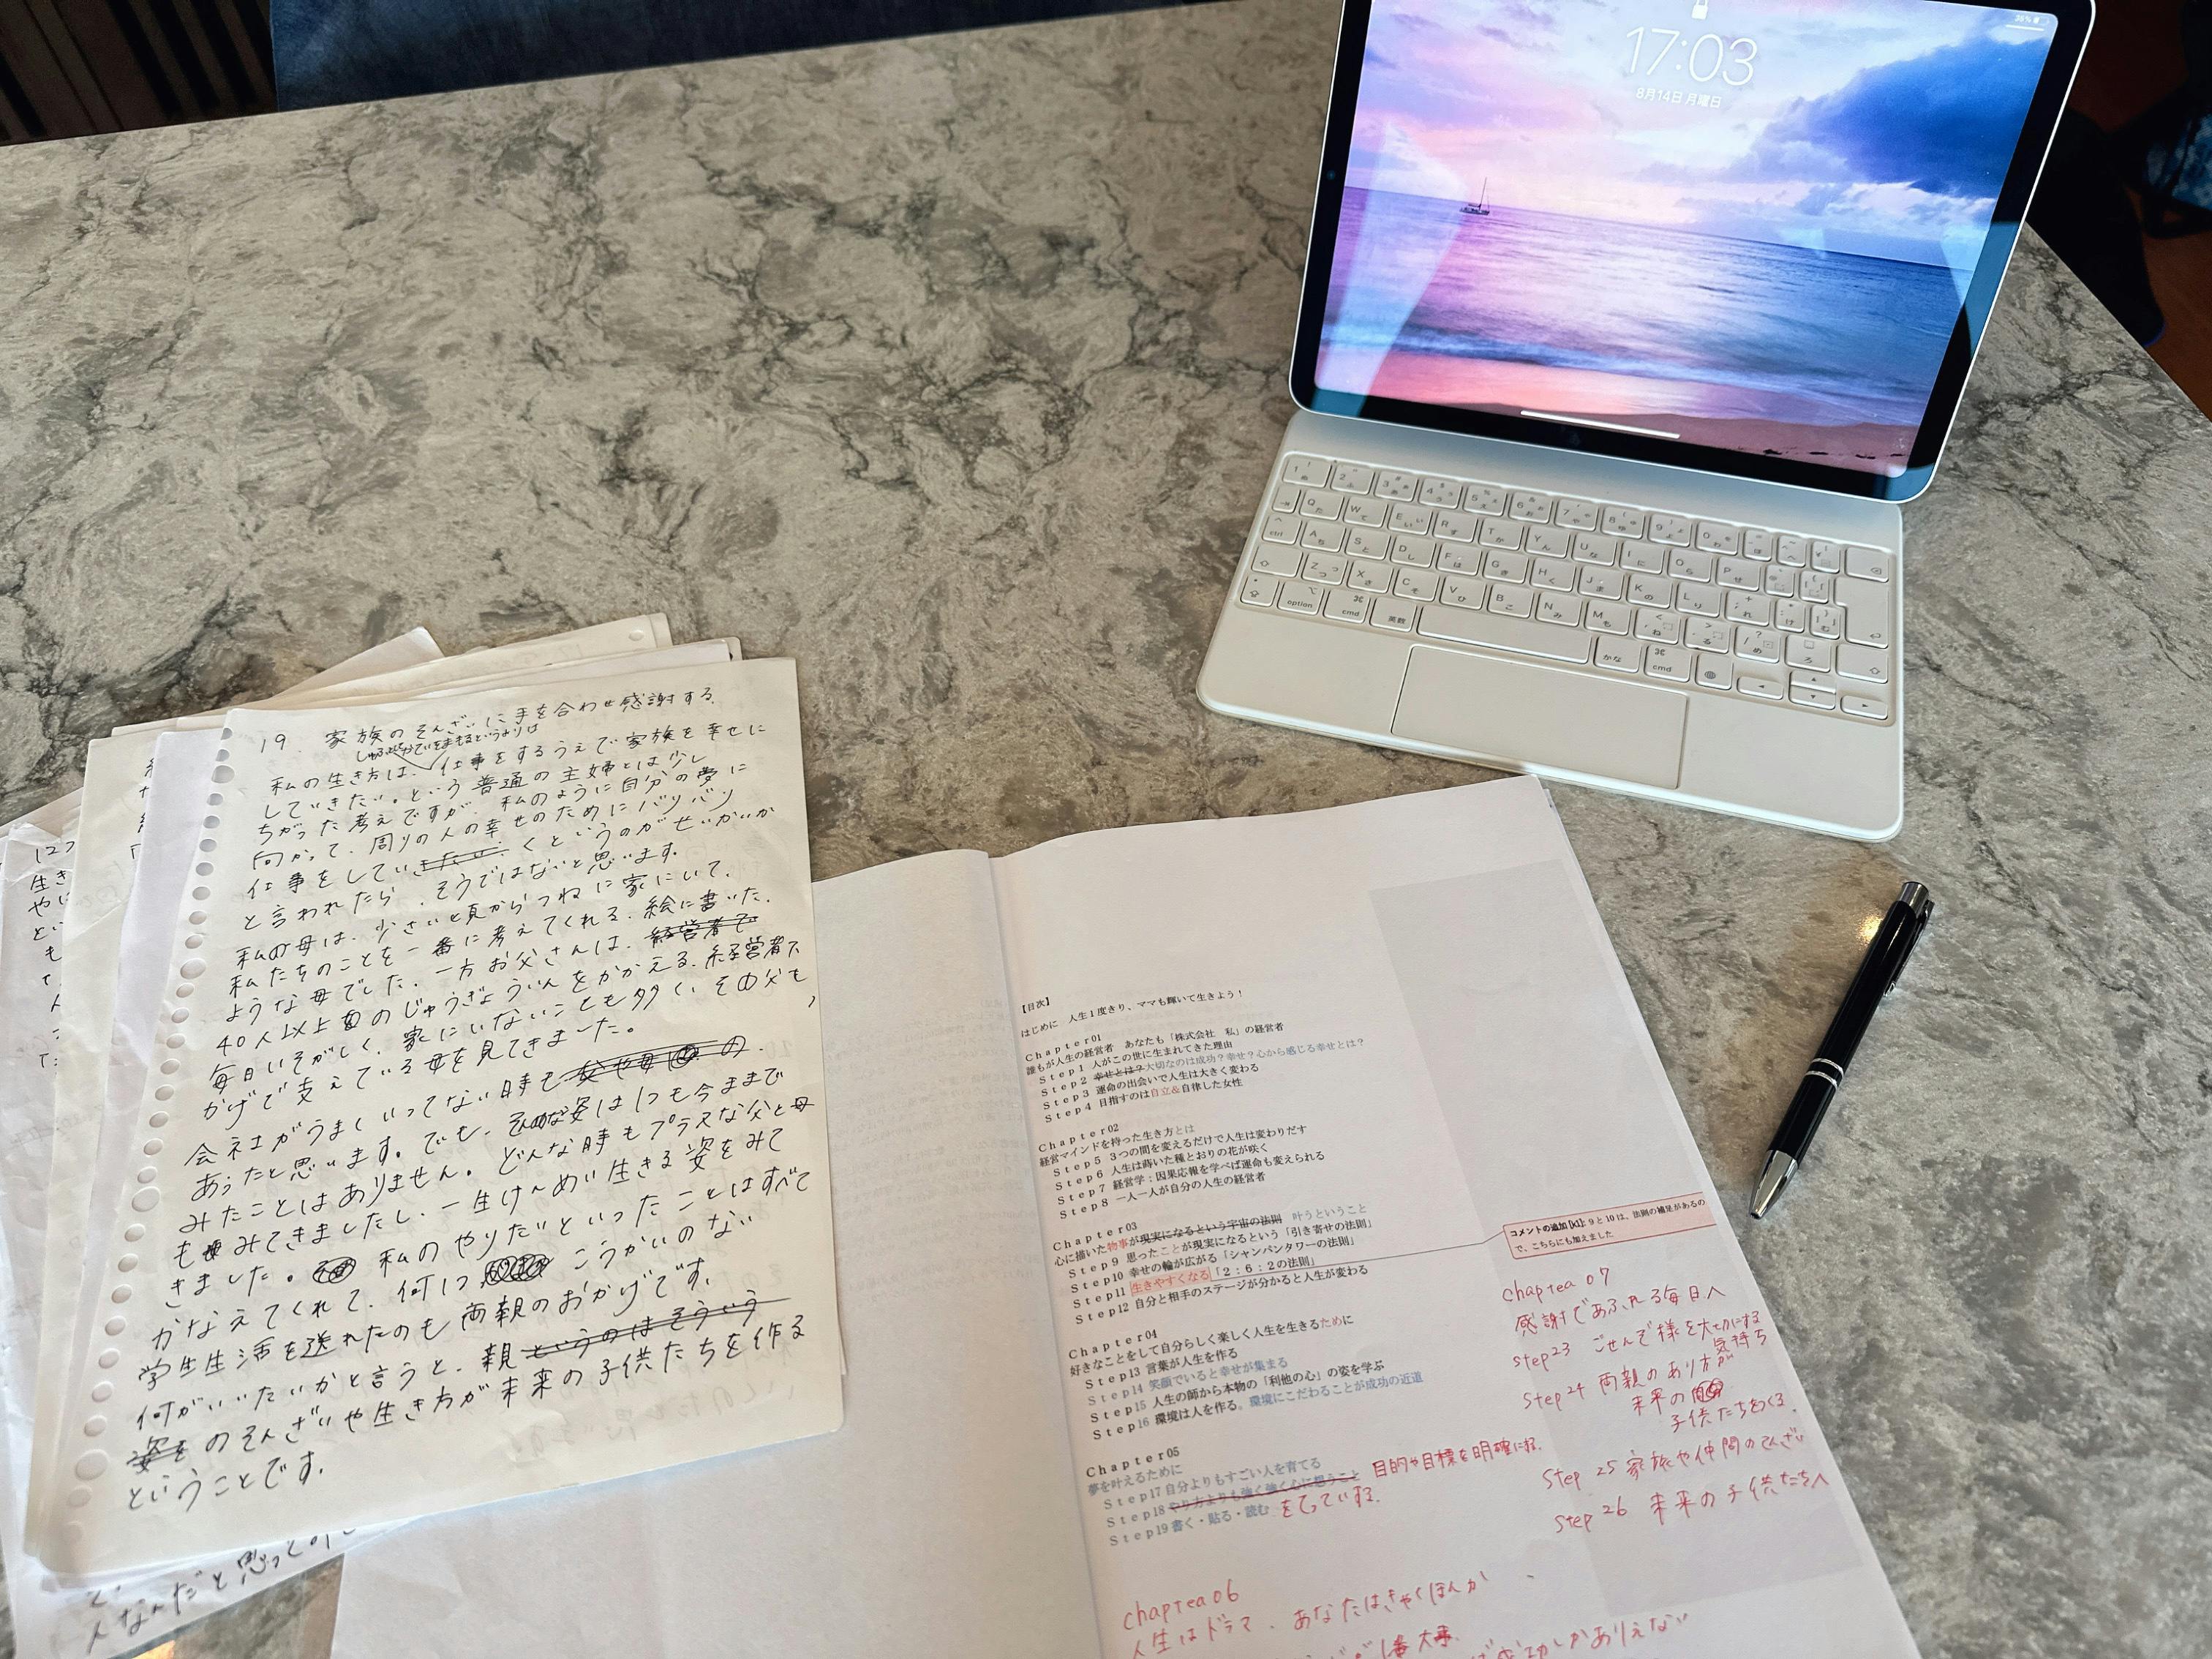 17:03
8月14日 月曜日
36%
19. 家族のそんざいに手を合わせ感謝する。
私の生き方は、仕事をするうえで家族を幸せに
していきたい。という普通の主婦とは少し
ちがった考えですが、私のように自分の夢に
向かって、周りの人の幸せのためにバリバリ
仕事をしていきたい くというのがせいかいか
と言われたら、そうではないと思います。
私の母は、小さい頃からつねに家にいて、
私たちのことを一番に考えてくれる、絵に書いた
ような母でした。一方お父さんは、経営者で
40人以上のじゅうぎょういんをかかえる、経営者で
毎日いそがしく、家にいないことも多く、その父も
かげで支えている母を見てきました。
会社がうまくいってない時も の
あったと思います。でも、そんな姿は1つも今まで
みたことはありません。どんな時もプラスな父と母
もみてきましたし、一生けんめい生きる姿をみて
きました。私のやりたいといったことはすべて
かなえてくれて、何1つ こうかいのない
学生生活を送れたのも両親のおかげです。
何がいいたいかと言うと、親というのはそういう
姿を のそんざいや生き方が未来の子供たちを作る
ということです。
人なんだと思っ
【目次】
はじめに 人生1度きり、ママも輝いて生きよう!
Chapter01
誰もが人生の経営者 あなたも「株式会社 私」の経営者
Step1 人がこの世に生まれてきた理由
Step2 幸せとは?大切なのは成功?幸せ?心から感じる幸せとは?
Step3 運命の出会いで人生は大きく変わる
Step4 目指すのは自立&自律した女性
Chapter02
経営マインドを持った生き方とは
Step5 3つの間を変えるだけで人生は変わりだす
Step6 人生は蒔いた種とおりの花が咲く
Step7 経営学:因果応報を学べば運命も変えられる
Step8 一人一人が自分の人生の経営者
Chapter03
心に描いた物事が現実になるという宇宙の法則 叶うということ
Step9 思ったことが現実になるという「引き寄せの法則」
Step10 幸せの輪が広がる「シャンパンタワーの法則」
Step11 生きやすくなる「2:6:2の法則」
Step12 自分と相手のステージが分かると人生が変わる
Chapter04
好きなことをして自分らしく楽しく人生を生きるために
Step13 言葉が人生を作る
Step14 笑顔でいると幸せが集まる
Step15 人生の師から本物の「利他の心」の姿を学ぶ
Step16 環境は人を作る。環境にこだわることが成功の近道
Chapter05
夢を叶えるために
Step17 自分よりもすごい人を育てる
Step18 やり方よりも強く強く心に想うこと 目的や目標を明確にする。
Step19 書く・貼る・読む をてっていする。
chaptea 06
人生はドラマ、あなたはきゃくほんか
コメントの追加 [k1]: 9と10は、法則の補足があるの
で、こちらにも加えました
chaptea 07
感謝であふれる毎日へ
step23 ごせんぞ様を大切にする
気持ち
step24 両親のあり方が
未来の
子供たちをつくる。
Step 25 家族や仲間のそんざい
Step 26 未来の子供たちへ